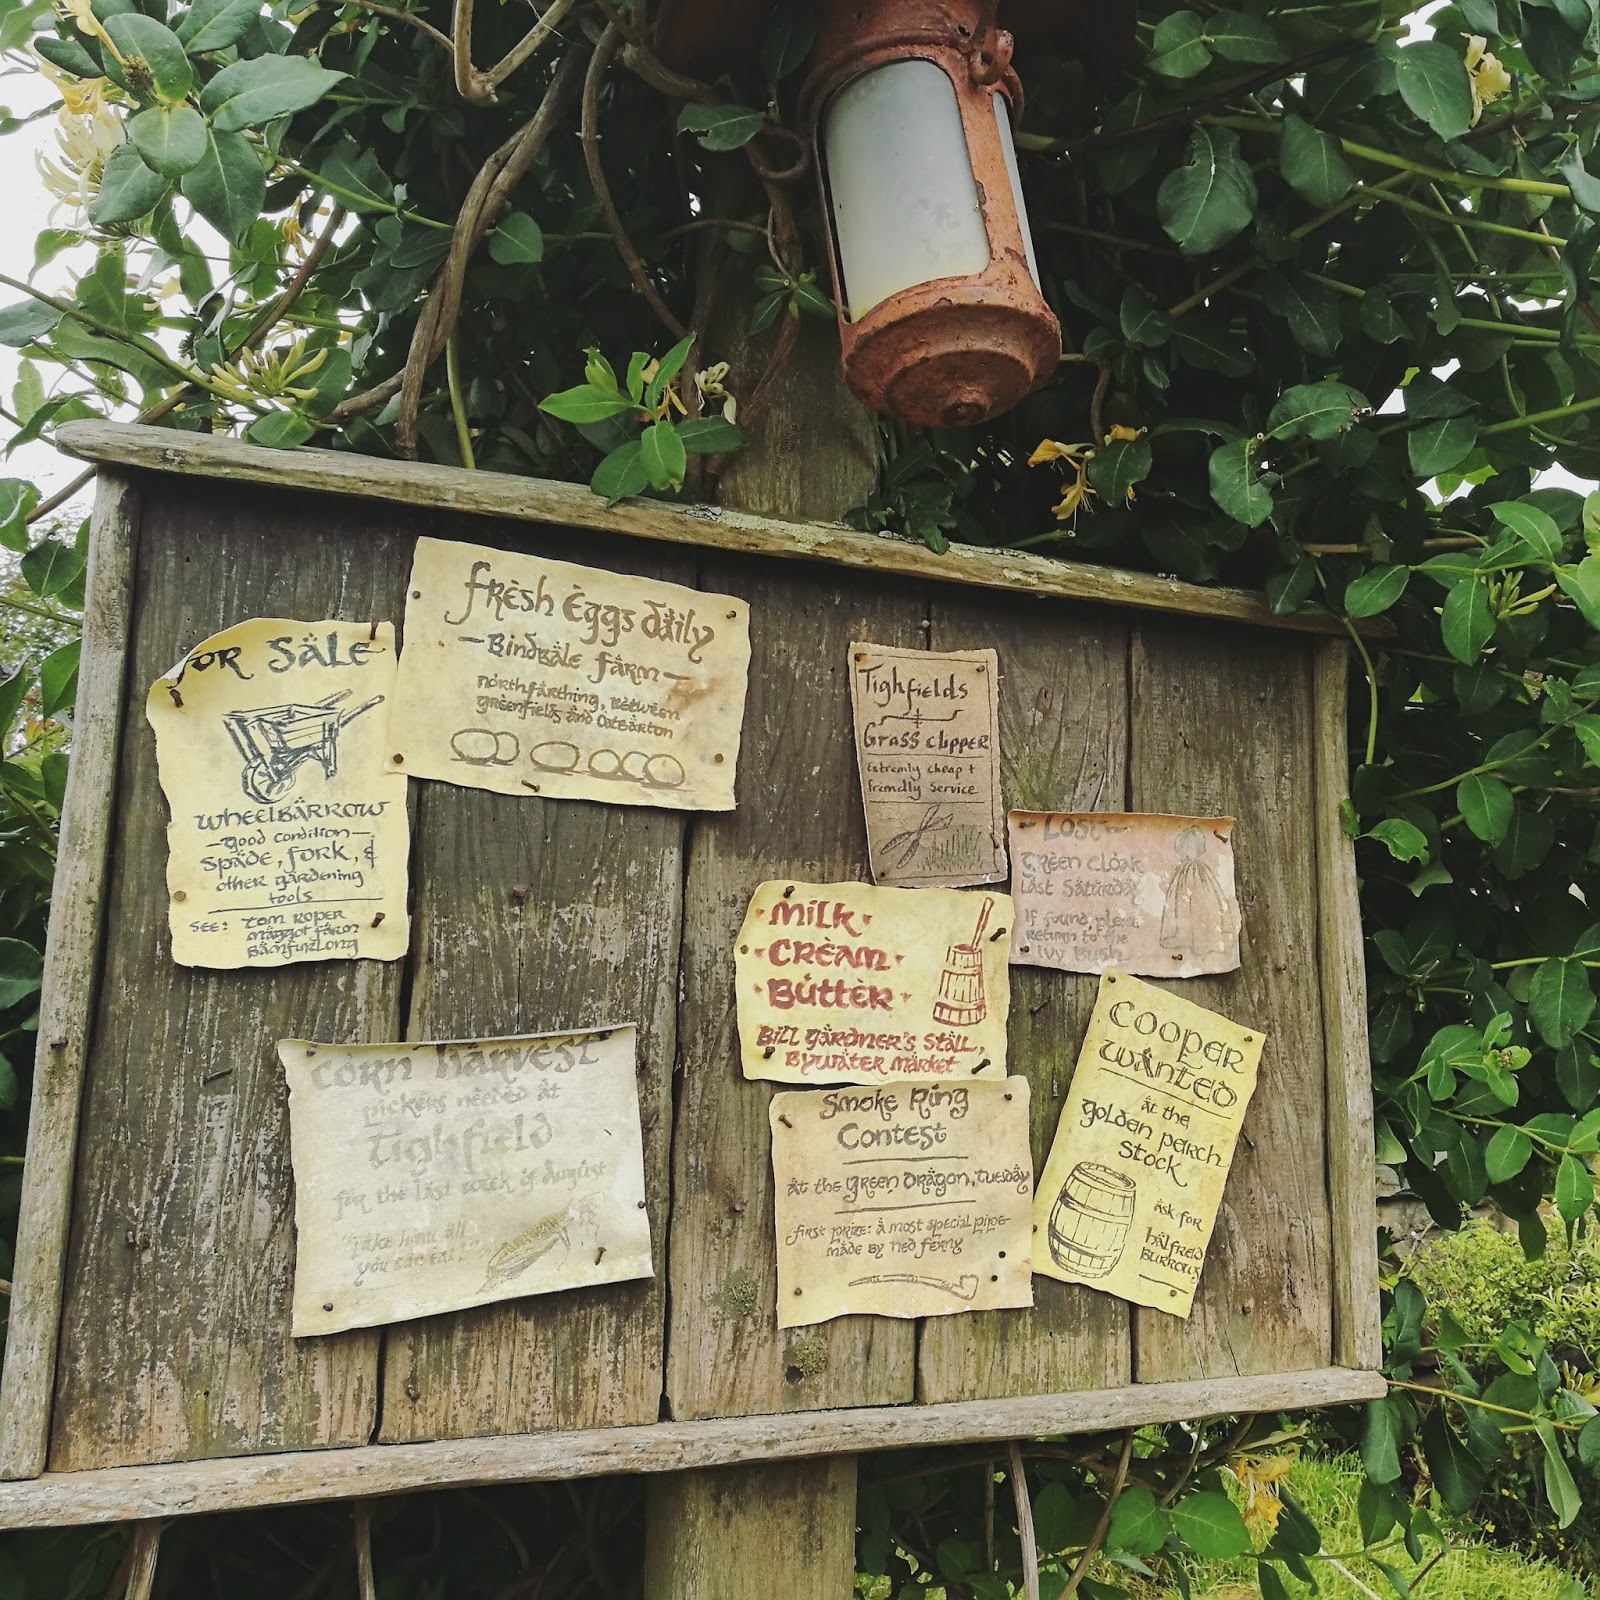 For Sale
Wheelbarrow
-Good condition-
Spade, fork, &
other gardening
tools
See: Tom Roper
Maggot Farm
Bamfurlong
Fresh Eggs daily
-Bindbale Farm-
Northfarthing, Between
Greenfields and Oatbarton
Tighfields
Grass Clipper
Extremly cheap +
friendly service
~ Lost ~
Green Cloak
Last Saturday
If found, please
return to the
Ivy Bush
• Milk •
• Cream •
• Butter •
Bill Gardner's Stall,
Bywater Market
Corn Harvest
pickers needed at
Tighfield
for the last week of August
"Take home all
you can eat."
Smoke Ring
Contest
at the Green Dragon, Tuesday
First prize: a most special pipe
made by Ned Ferny
Cooper
Wanted
at the
Golden Perch
Stock
ask for
Halfred
Burrows